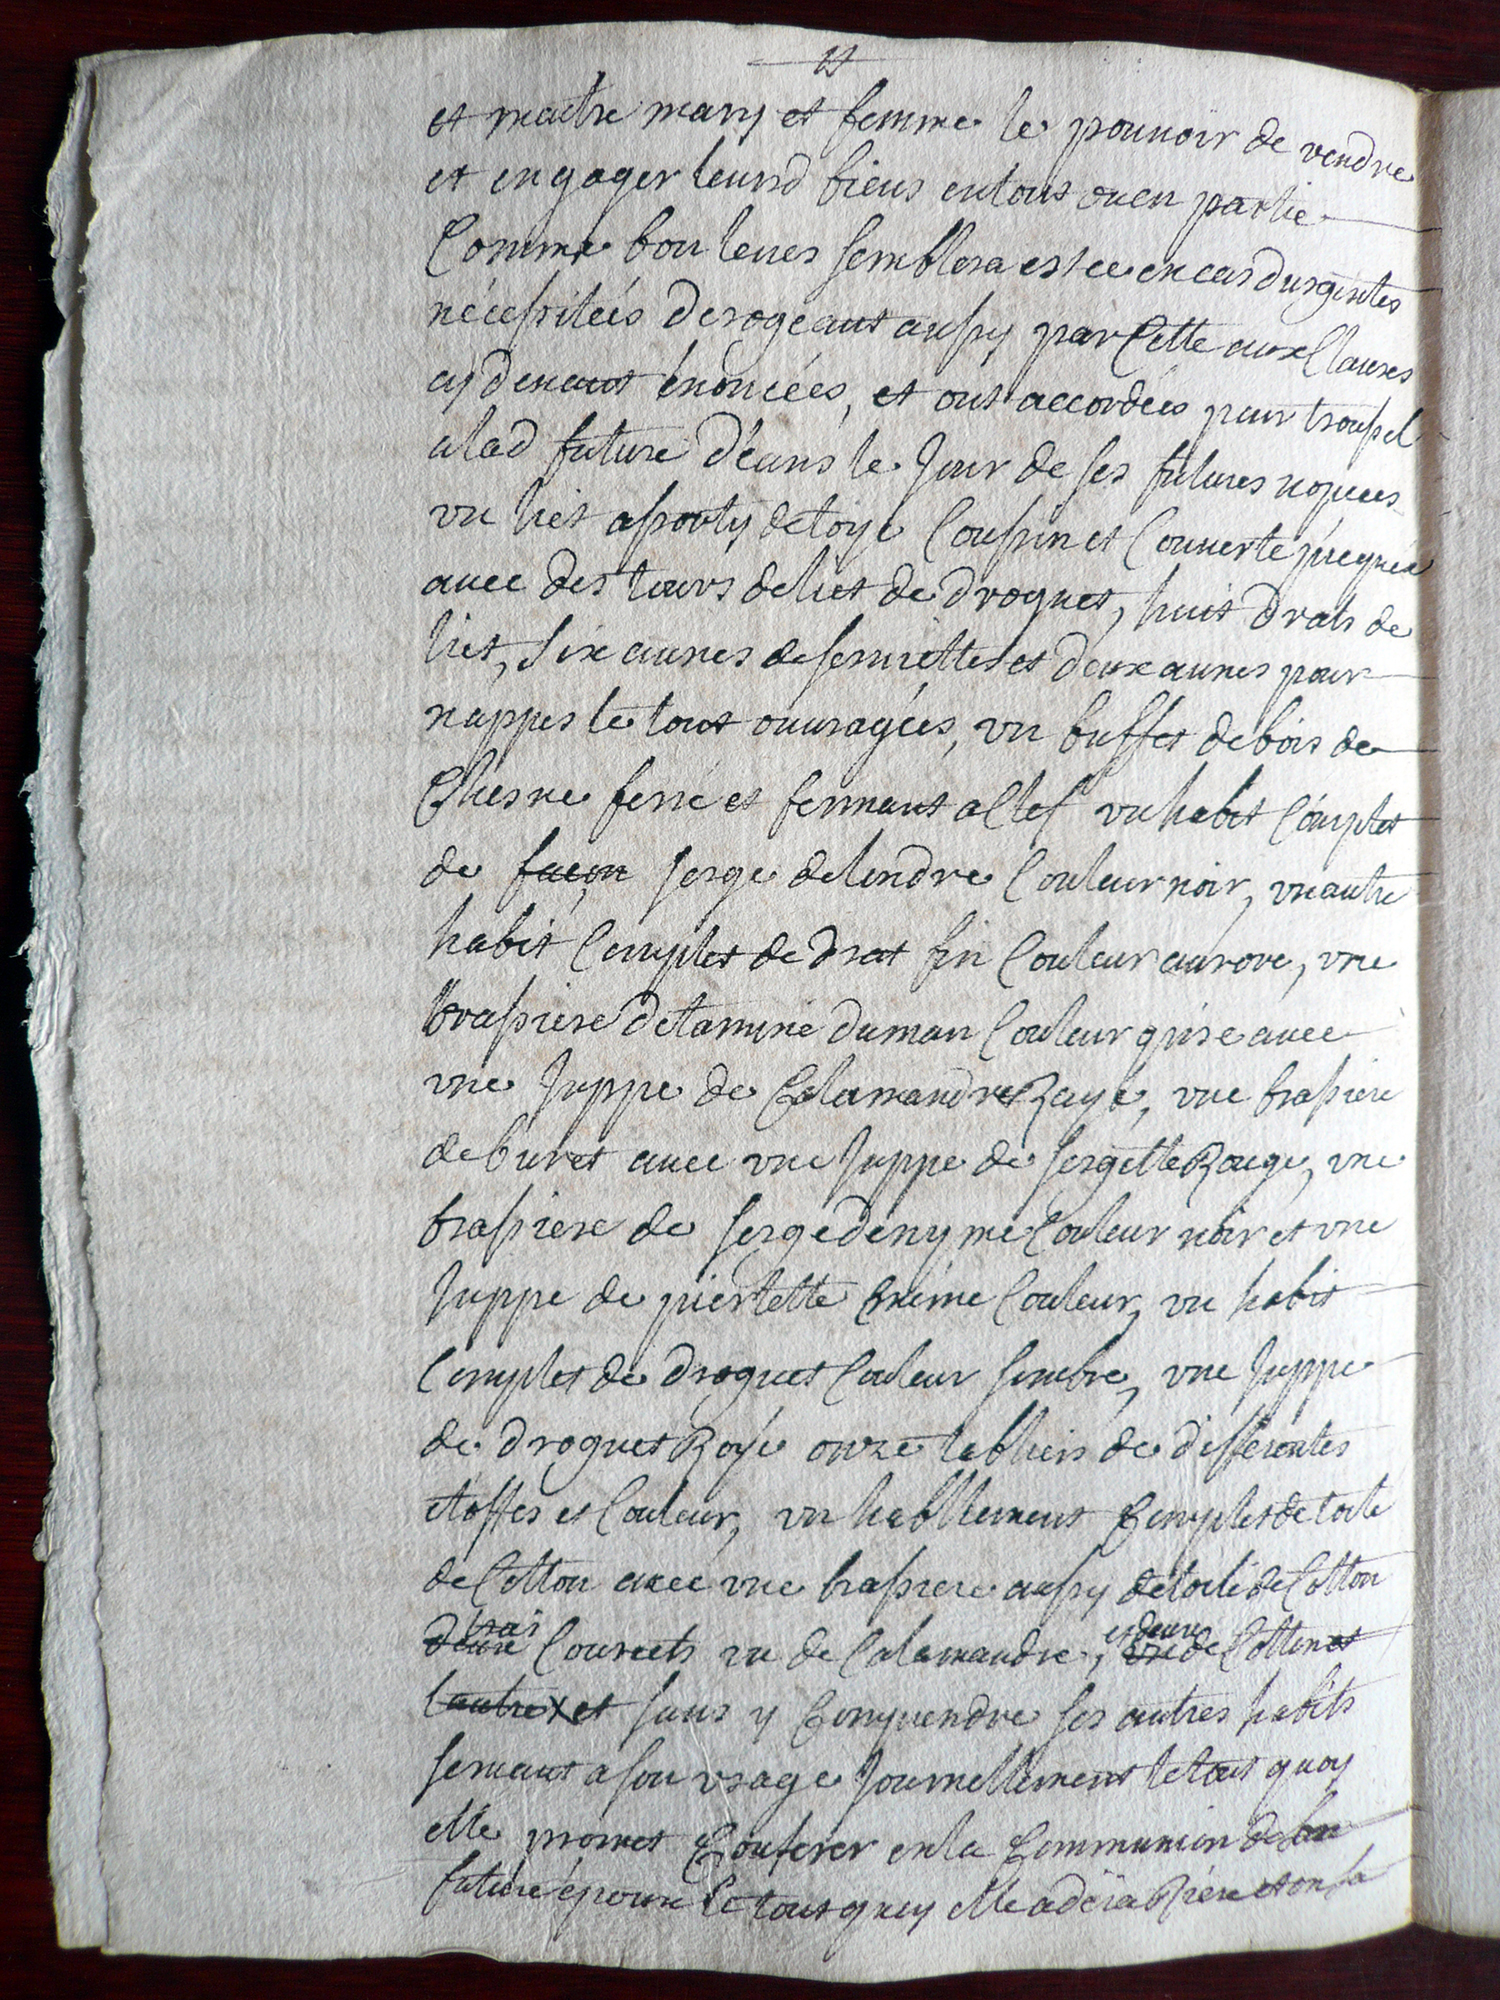 et maitre mary et femme le pouuoir de vendre
et engager leursd biens entous ouen partie
Comme bon leurs semblera et ce encas durgentes
nécessitées derogeant aussy par Cette aux Clauses
cy deuant énoncées, et ont accordées pour troussel
alad future d'éans le Jour de ses futures nopces
vn liet assorty de toye Coussin et Couuerte picquée
auec des tours deliet de droguet, huit drats de
liet, six aunes de seruiettes et deux aunes pour
nappes le tout ouuragées, vn buffet debois de
Chesne ferré et fermant a Clef vn habit Complet
de façon serge delondre Couleur noir, vn autre
habit Complet de drat fin Couleur aurore, vne
brassiere detamine duman Couleur grise auec
vne Juppe de Calamandre Rayé, vne brassiere
deburet auec vne Juppe de sergette Rouge, vne
brassiere de serge denyme Couleur noir et vne
Juppe de même Couleur, vn habit
Complet de droguet Couleur sombre, vne Juppe
de droguet Rayé onze tabliers de differentes
etoffes et Couleur, vn habllement Complet de toile
de Cotton auec vne brassiere aussy de toile de Cotton
deux trois Corcets vn de Calamandre, et deux vn de Cotton et
lautre et sans y Comprendre ses autres habits
seruant a son vsage Journellement le tout quoy
elle promet Conferer en la Communion de son
future époux le tout quoy elle a déja Riere et en sa